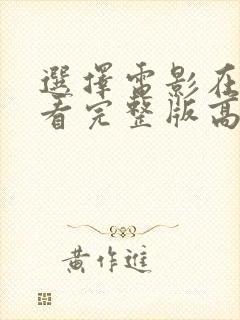 選擇雷影在
看完整版高
黃作進